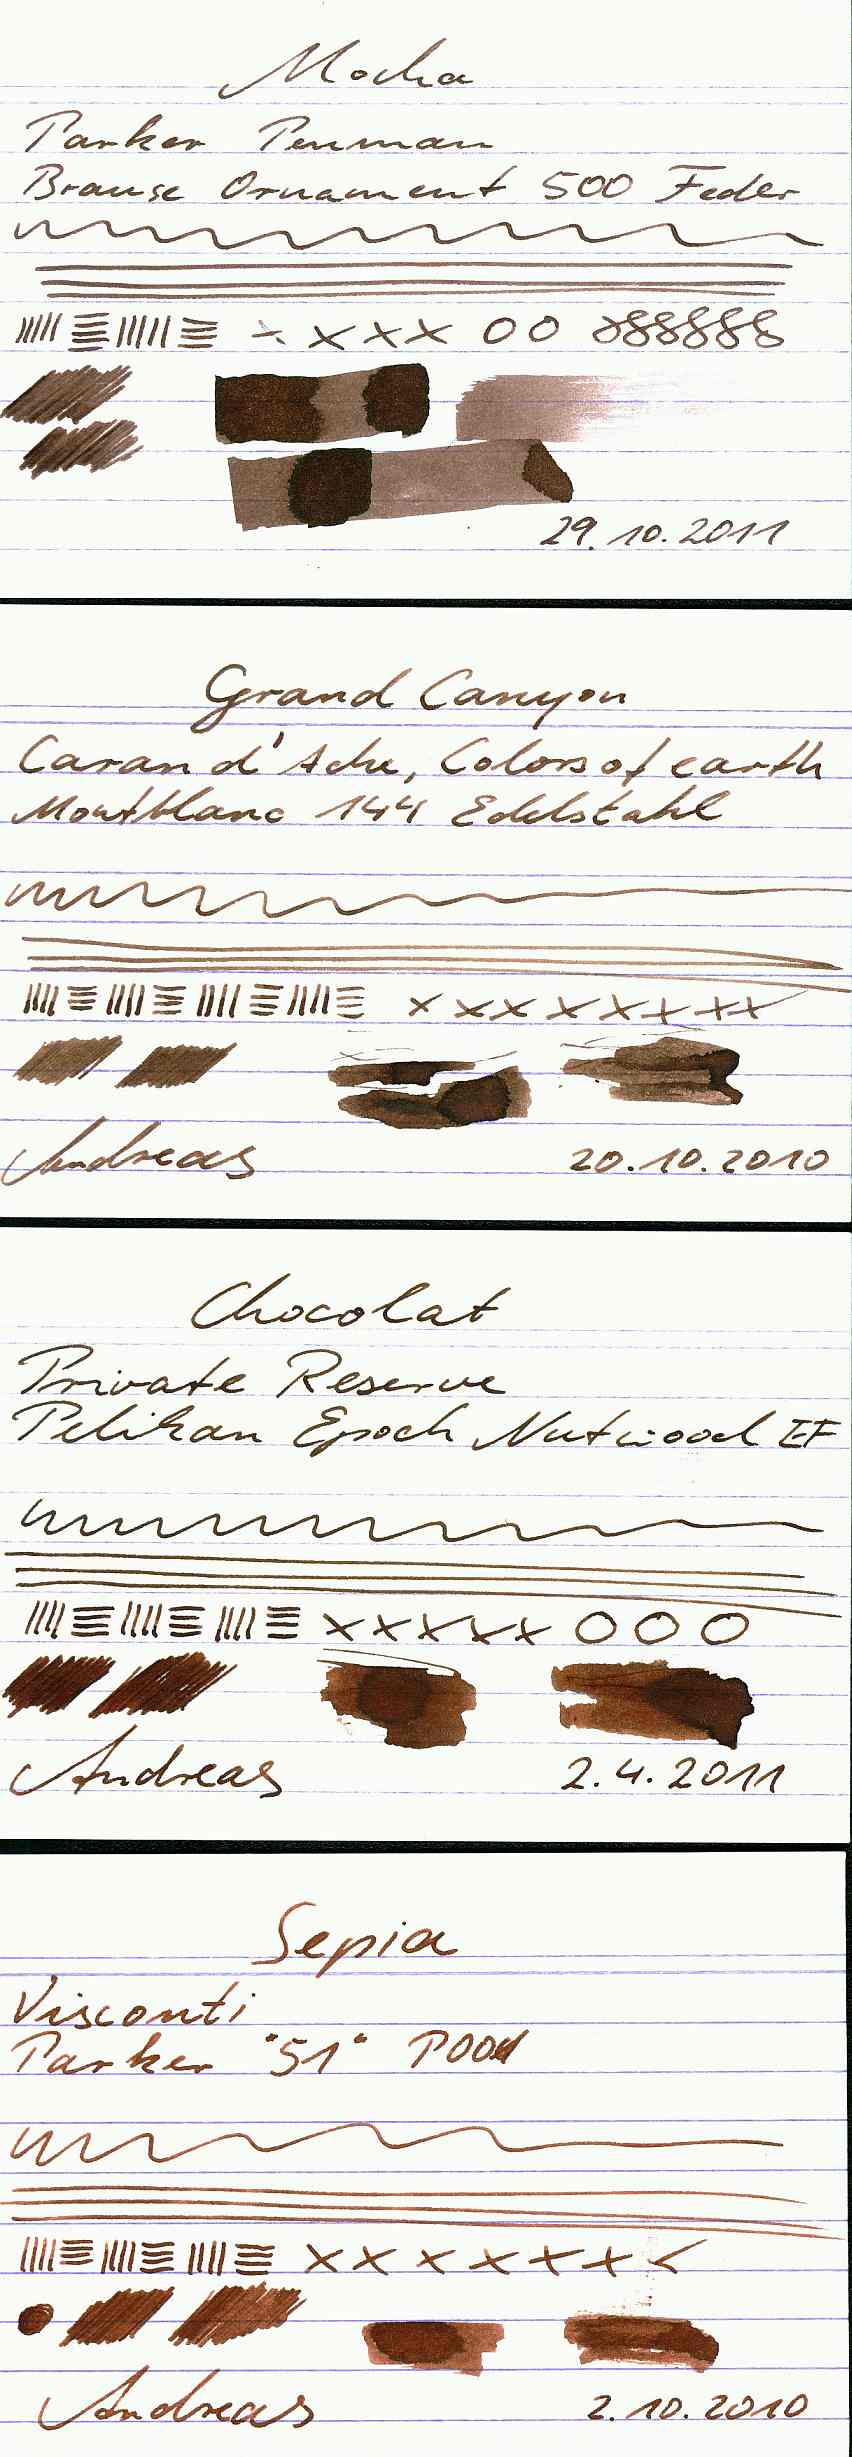 Mocha
Parker Penman
Brause Ornament 500 Feder
29.10.2011
Grand Canyon
Caran d'Ache, Colors of earth
Montblanc 144 Edelstahl
Andreas 20.10.2010
Chocolat
Private Reserve
Pelikan Epoch Nutwood EF
Andreas 2.4.2011
Sepia
Visconti
Parker "51"
Andreas 2.10.2010